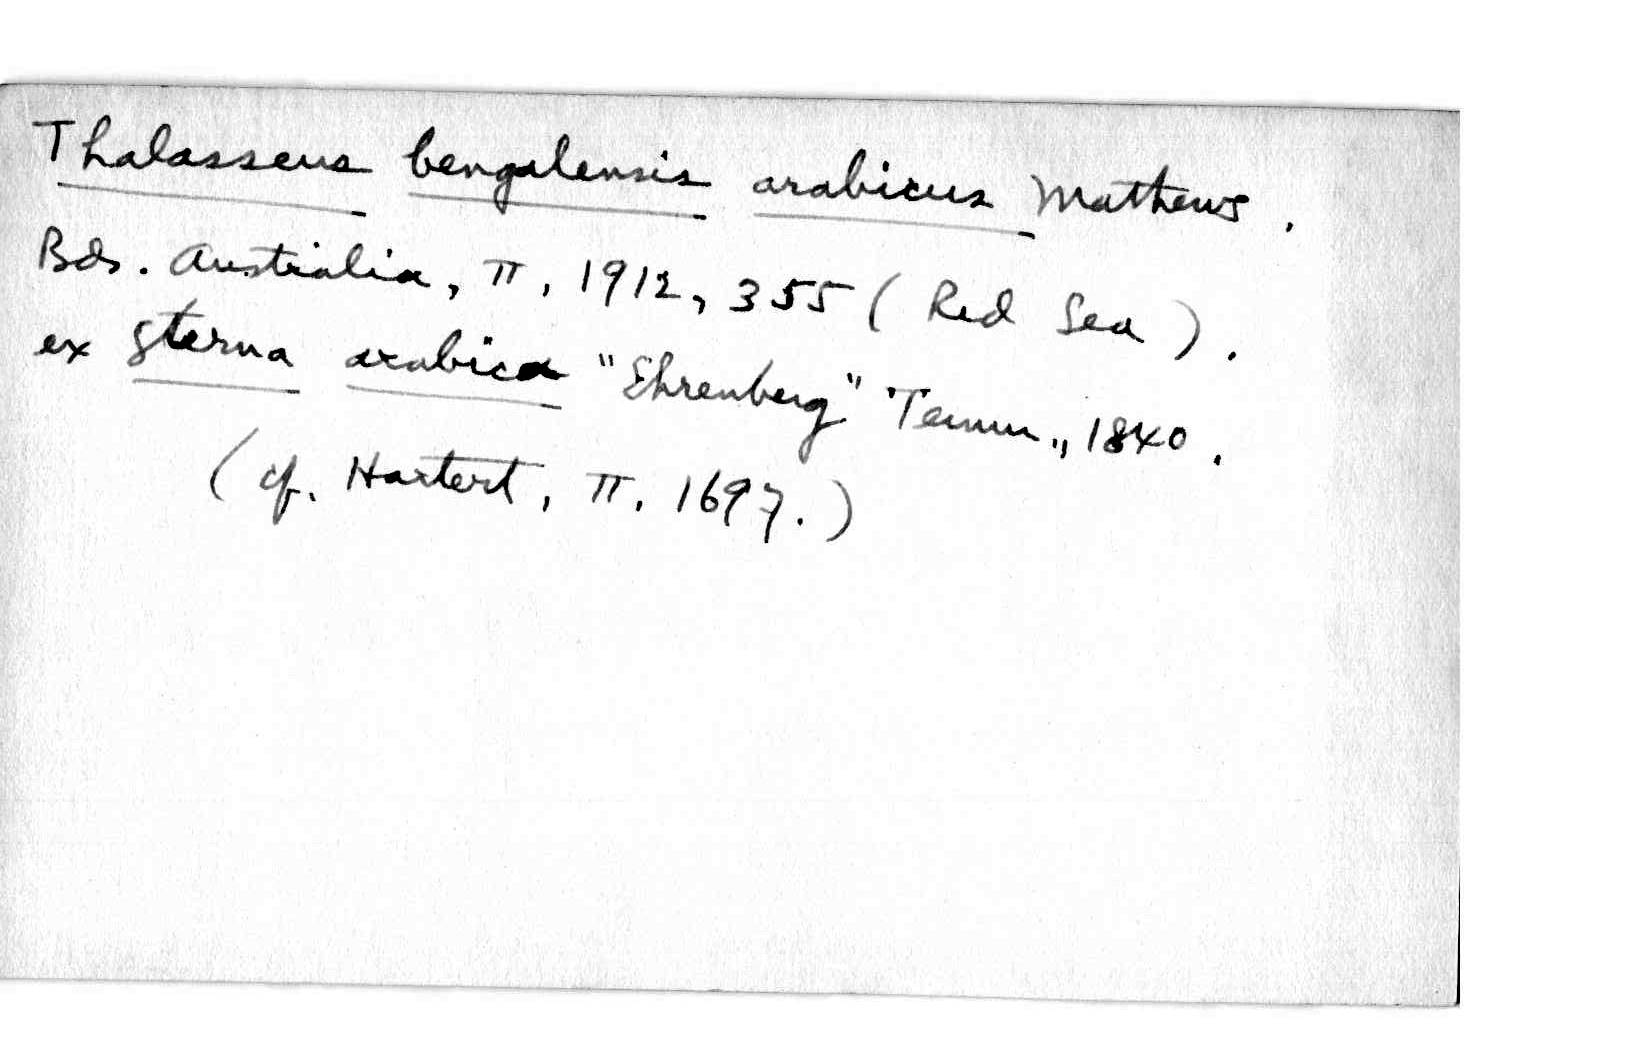 Thalasseus bengalensis arabicus Mathews.
Bds. Australia, II, 1912, 355 (Red Sea).
ex Sterna arabica "Ehrenberg" Temm., 1840.
(cf. Hartert, II. 1697.)